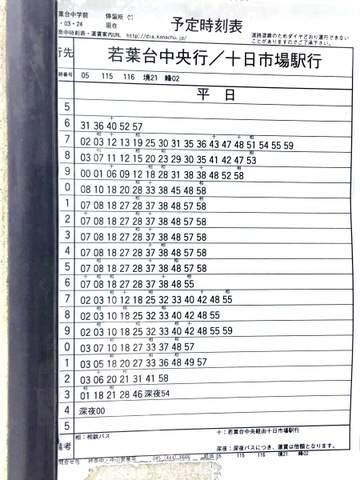 葉台中学前 停留所 01
・03・24 現在
予定時刻表
時刻・運賃案内URL http://dia.kanachu.jp/
道路混雑のためダイヤどおり運行できない
ことがありますのでご了承下さい。
行先 若葉台中央行／十日市場駅行
統番号 05 115 116 境21 峰02
平 日
5
6 31 36 40 52 57
7 02 03 12 13 19 25 30 31 35 36 43 47 48 51 54 55 59
8 03 07 11 12 15 20 23 29 30 35 41 42 47 53
9 00 01 06 09 12 18 28 31 38 38 48 52 58
0 08 10 18 20 28 33 38 45 48 58
1 07 08 18 20 28 37 38 48 57 58
2 07 08 18 27 28 37 38 48 57 58
3 07 08 18 27 28 37 38 48 57 58
4 07 08 18 27 28 37 38 48 57 58
5 07 08 18 27 28 37 38 48 57 58
6 07 08 18 20 28 33 38 48 55
7 02 03 10 12 18 25 32 33 40 42 48 55
8 02 03 10 18 25 32 33 40 42 48 55
9 02 03 10 18 25 32 33 40 42 48 55 59
0 03 07 10 18 27 33 37 48 57
1 03 05 18 20 27 33 36 48 49 57
2 03 06 20 21 31 41 58
3 01 18 21 28 46 深夜54
4 深夜00
5
備考 相：相鉄バス 十：若葉台中央経由十日市場駅行
深夜：深夜バスにつき、運賃は倍額となります。
05 115 116 境21 峰02